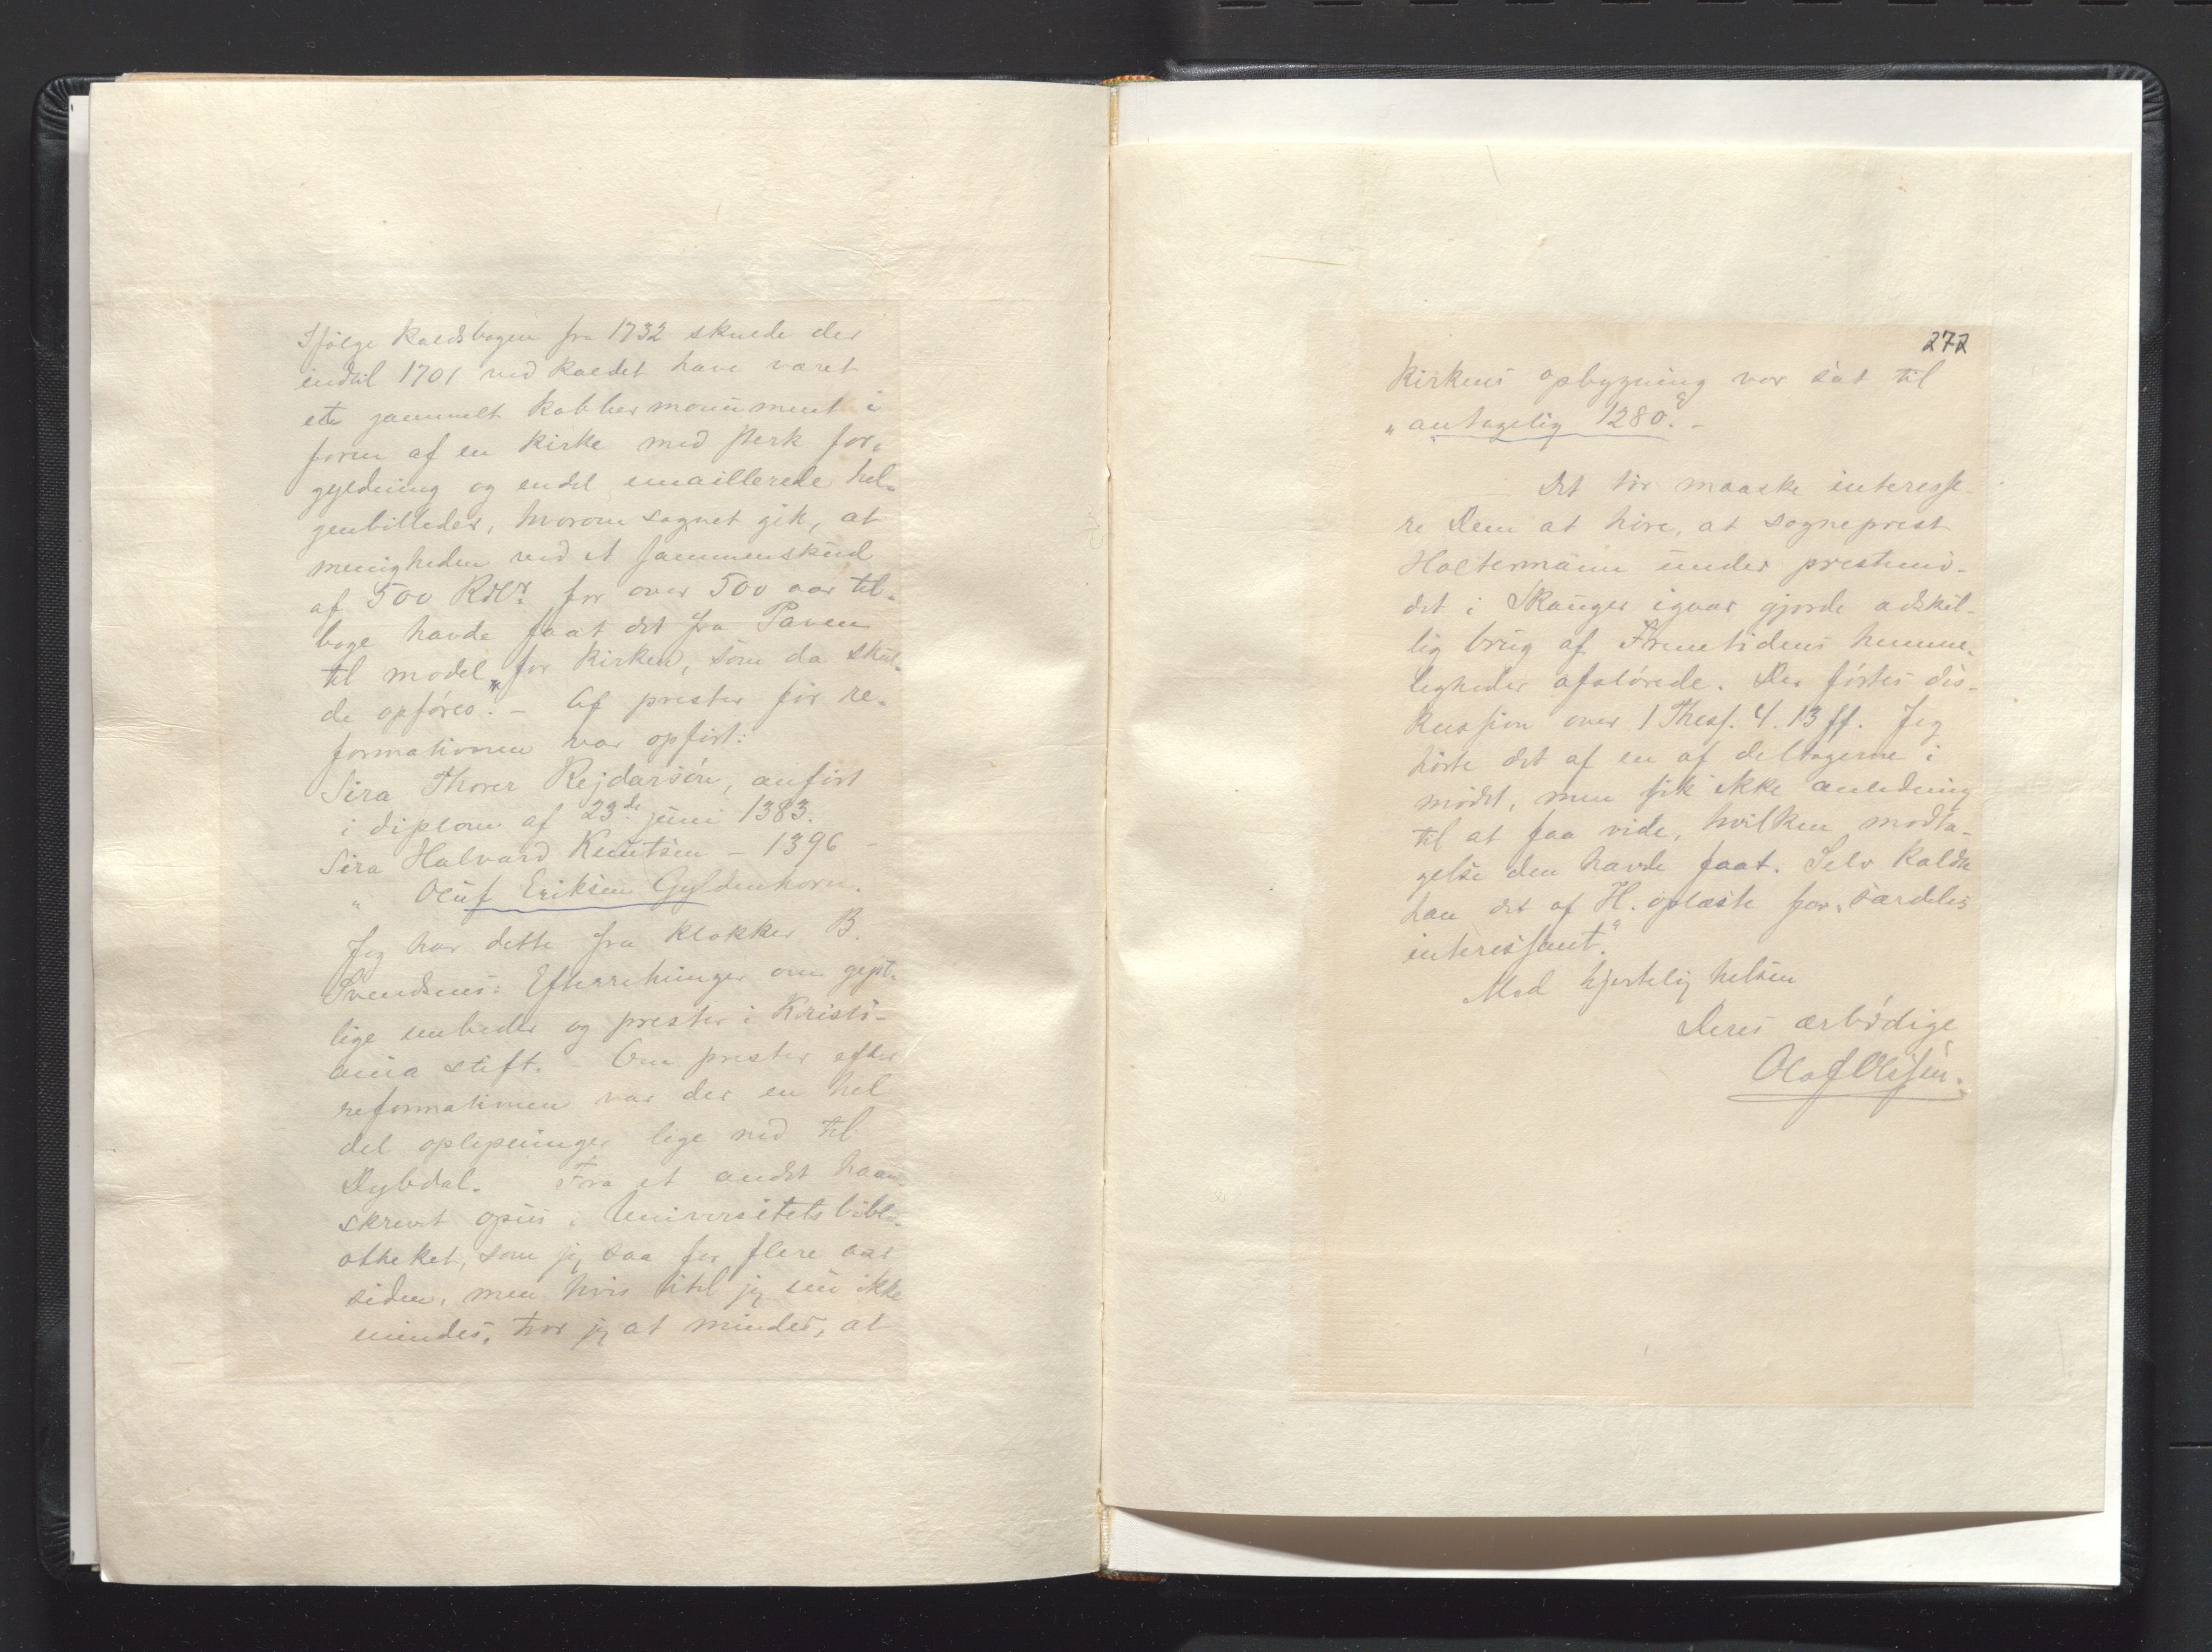 Ifölge kaldsbogen fra 1732 skulde der
indtil 1701 ved kaldet have været
et gammelt kobbermonument i
form af en kirke med sterk for-
gyldning og endel emaillerede hel-
genbilleder, hvorom sagnet gik, at
menigheden ved et sammenskud
af 500 Rdlr. for over 500 aar til-
bage havde faaet det fra Paven
til model for kirken, som da skul-
de opföres. - Af prester för re-
formationen var opfört:
Sira Thorer Rejdarsön, anfört
i diplom af 23de juni 1383.
Sira Halvard Knutsen - 1396 -
" Oluf Eriksen Gyldenhorn.
Jeg har dette fra klokker B.
Svendsens: Efterretninger om gejst-
lige embeder og prester i Kristi-
ania stift. - Om prester efter
reformationen var der en hel
del oplysninger lige ned til
Dybdal. Fra et andet haand-
skrevet opus i Universitetsbibli-
otheket, som jeg saa for flere aar
siden, men hvis titel jeg nu ikke
mindes, tror jeg at mindes, at
272
kirkens opbygning var sat til
"antagelig 1280." -
Det tör maaske interesse-
re Dem at höre, at sogneprest
Holtermann under prestemö-
det i Skauger igaar gjorde adskil-
lig brug af Fremtidens hemme-
ligheder afslörede. Der förtes dis-
kussion over 1 Thess. 4. 13 ff. Jeg
hörte det af en af deltagerne i
mödet, men fik ikke anledning
til at faa vide, hvilken modta-
gelse den havde faaet. Selv kaldte
han det af H. oplæste for "særdeles
interessant."
Med hjertelig hilsen
Deres ærbödige
Olaf Olafsen.